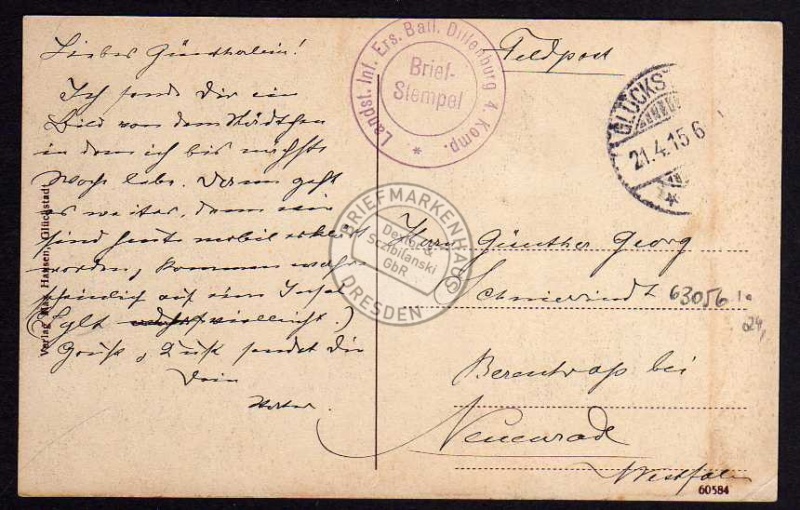 Liebes Güntherlein!
Ich sende Dir ein
Bild von dem Städtchen
in dem ich bis nächste
Woche lebe. Dann geht
es weiter, denn wir
sind heute mobil erklärt
worden, kommen wahr-
scheinlich auf eine Insel
(Sylt vielleicht.)
Gruß u. Kuß sendet Dir
Dein
Vater.
Verlag Max Hansen, Glückstadt
Landst. Inf. Ers. Batl. Dillenburg 4. Komp.
Brief-
Stempel
*
Feldpost
GLÜCKST
21.4.15 6
*
BRIEFMARKENHAUS
Dexl &
Sczibilanski
GbR
DRESDEN
Herrn Günther Georg
Schniewindt
63056 1a
24,
Berentrop bei
Neuenrade
Westfalen
60584